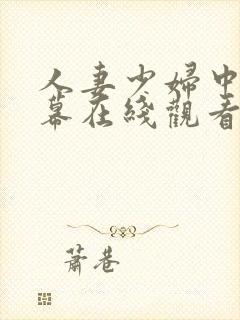 人妻少婦中
幕在綫觀看
蕭巷